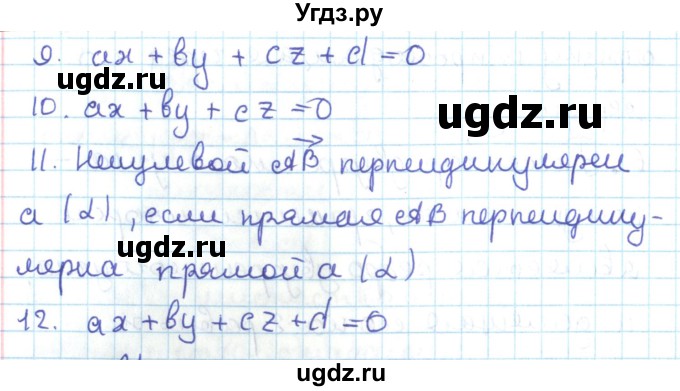 Угдз.ру
9. ax + by + cz + d = 0
ugdz.ru ugdz.ru
10. ax + by + cz = 0
11. Ненулевой AB перпендикулярен
a (α), если прямая AB перпендику-
ugdz.ru ugdz.ru
лярна прямой a (α)
12. ax + by + cz + d = 0
ugdz.ru ugdz.ru